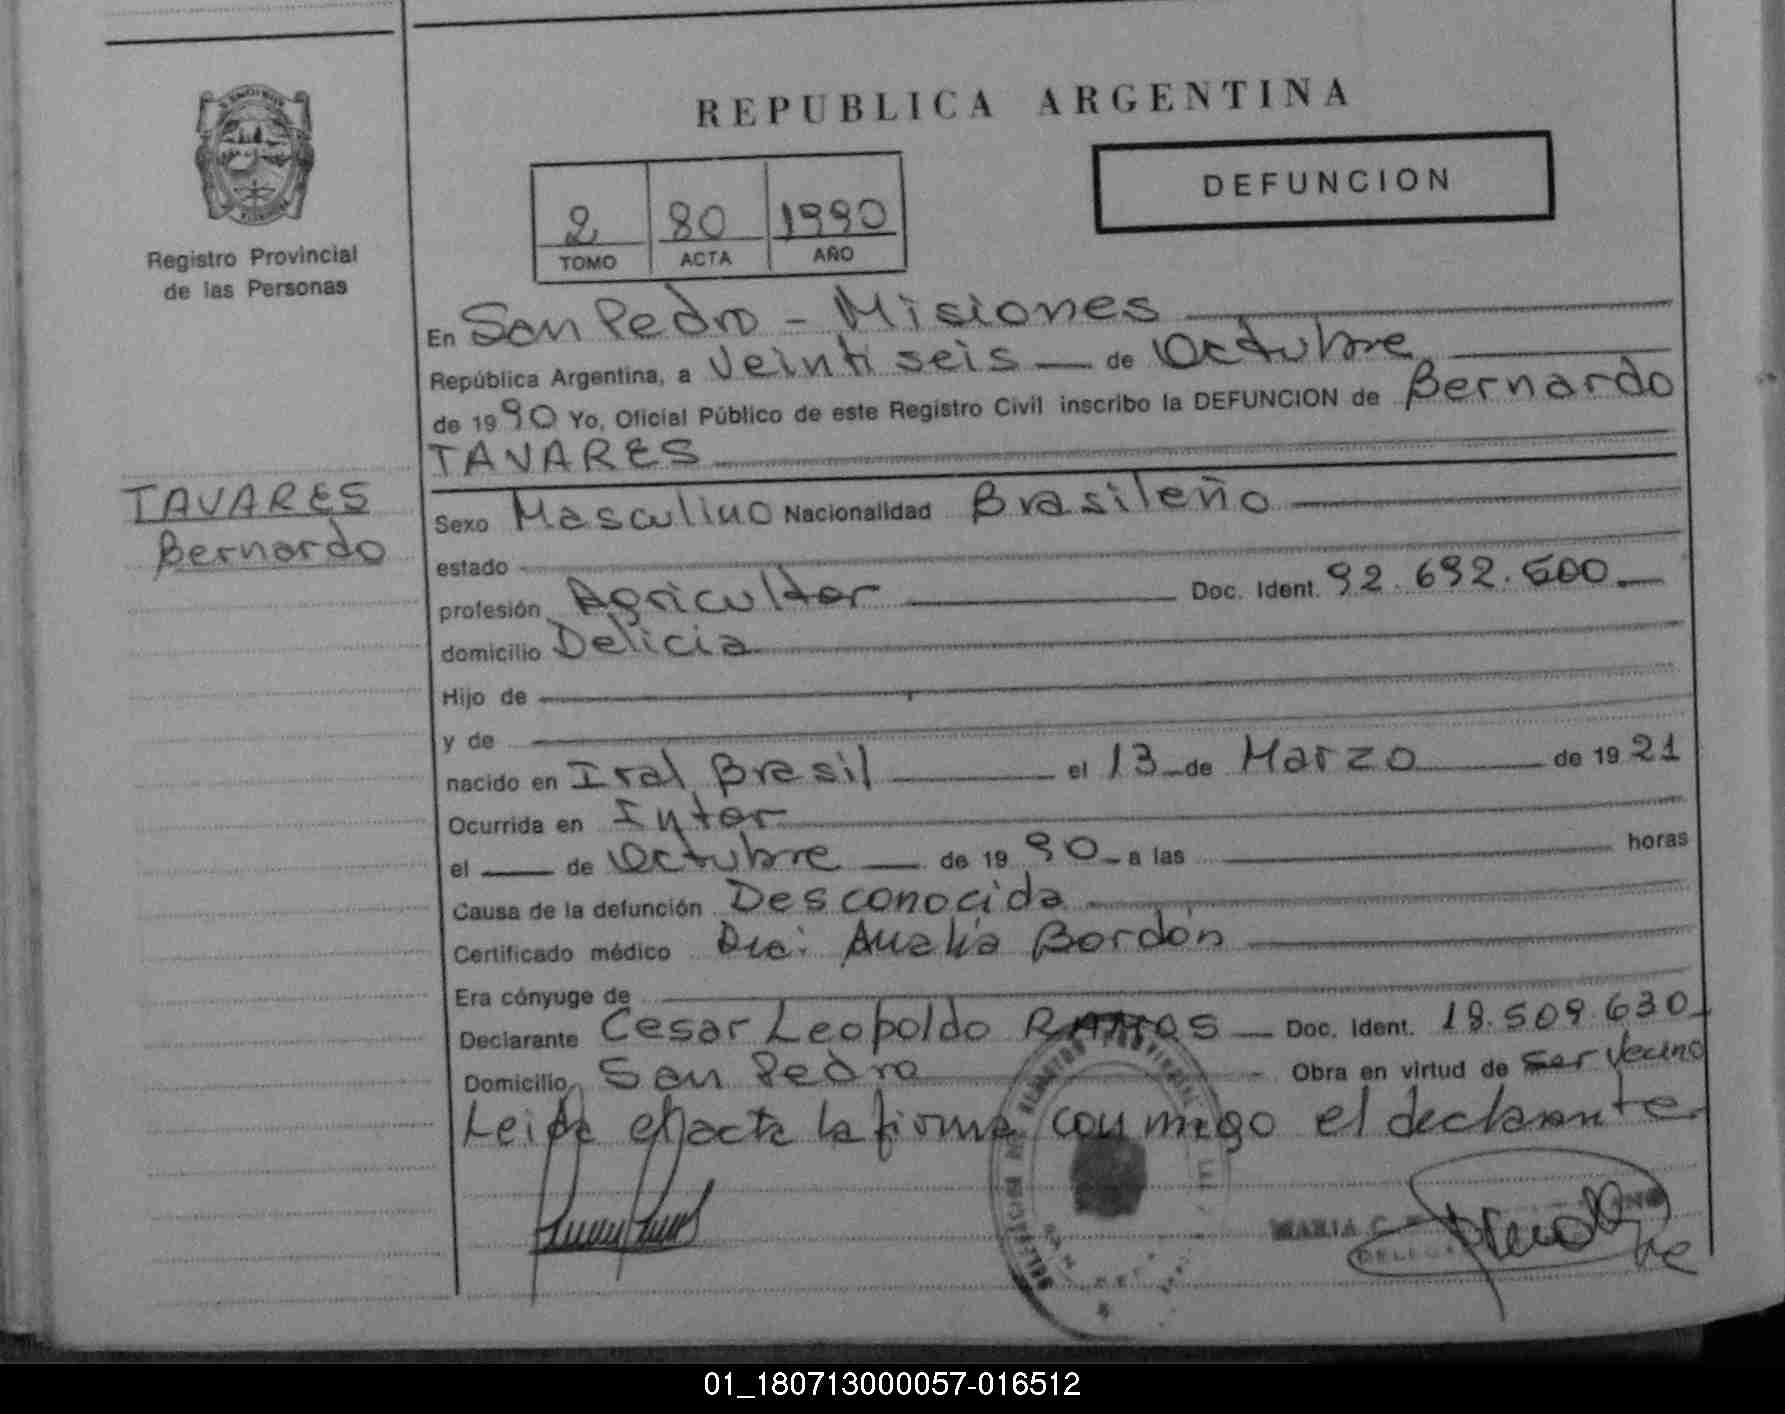 REPUBLICA ARGENTINA
DEFUNCION
2 80 1990
TOMO ACTA AÑO
Registro Provincial
de las Personas
En San Pedro - Misiones
República Argentina, a Veintiseis de Octubre
de 1990 Yo, Oficial Público de este Registro Civil inscribo la DEFUNCION de Bernardo
TAVARES
TAVARES
Bernardo
Sexo Masculino Nacionalidad Brasileño
estado
profesión Agricultor Doc. Ident. 92.692.600
domicilio Delicia
Hijo de
y de
nacido en Iraí Brasil el 13 de Marzo de 1921
Ocurrida en
el de Octubre de 1990 a las horas
Causa de la defunción Desconocida
Certificado médico Dra: Analia Bordón
Era cónyuge de
Declarante Cesar Leopoldo RAMOS Doc. Ident. 18.509.630
Domicilio San Pedro Obra en virtud de ser vecino
Leida el acta la firma conmigo el declarante
MARIA C.
01_180713000057-016512